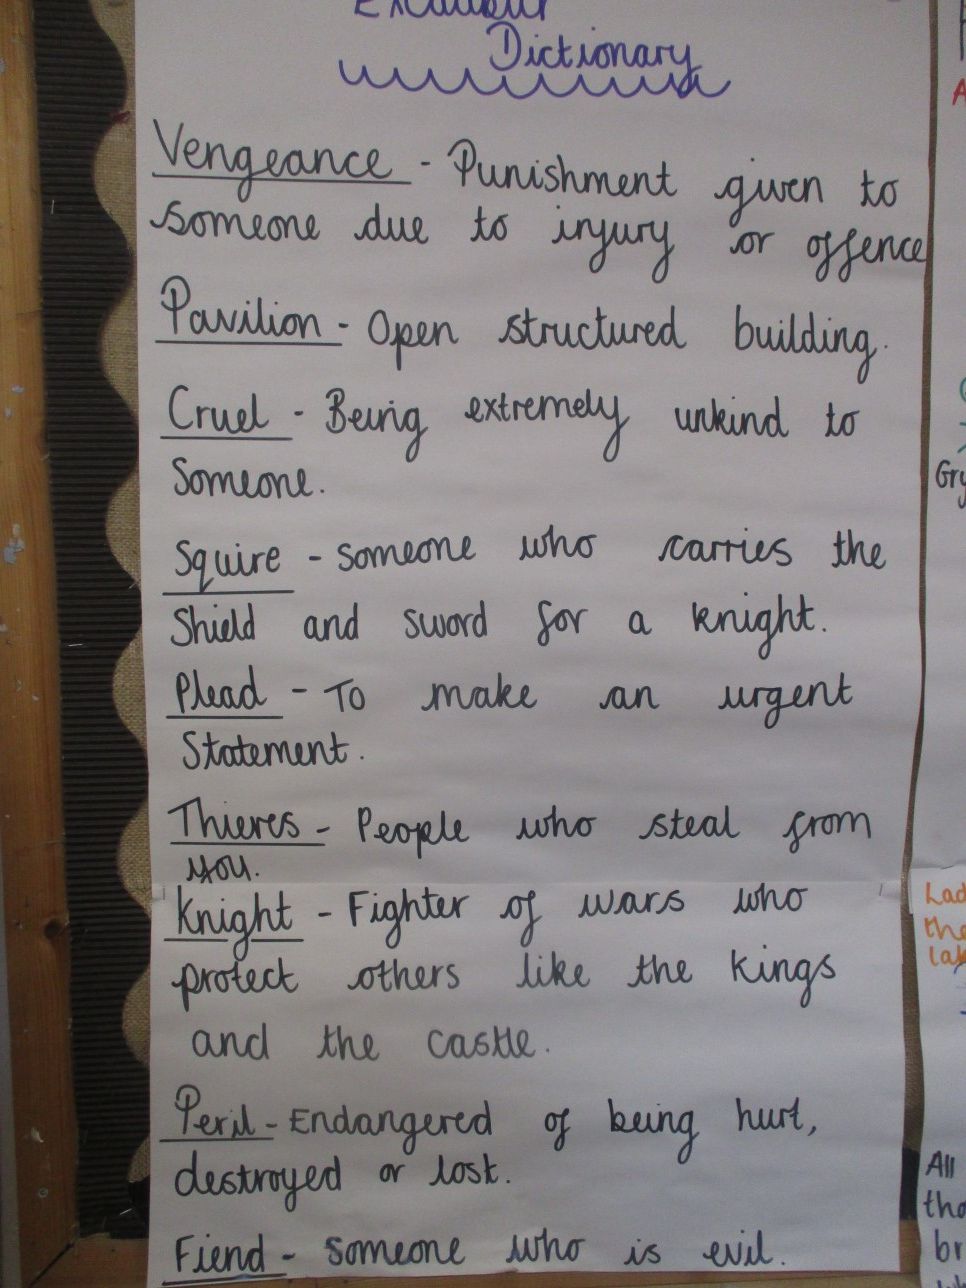 Excalibur
Dictionary
Vengeance - Punishment given to
someone due to injury or offence
Pavilion - Open structured building.
Cruel - Being extremely unkind to
Someone.
Squire - someone who carries the
Shield and sword for a knight.
Plead - To make an urgent
Statement.
Thieves - People who steal from
you.
Knight - Fighter of wars who
protect others like the kings
and the castle.
Peril - Endangered of being hurt,
destroyed or lost.
Fiend - someone who is evil.
Gry
Lad
the
lak
All
tho
br